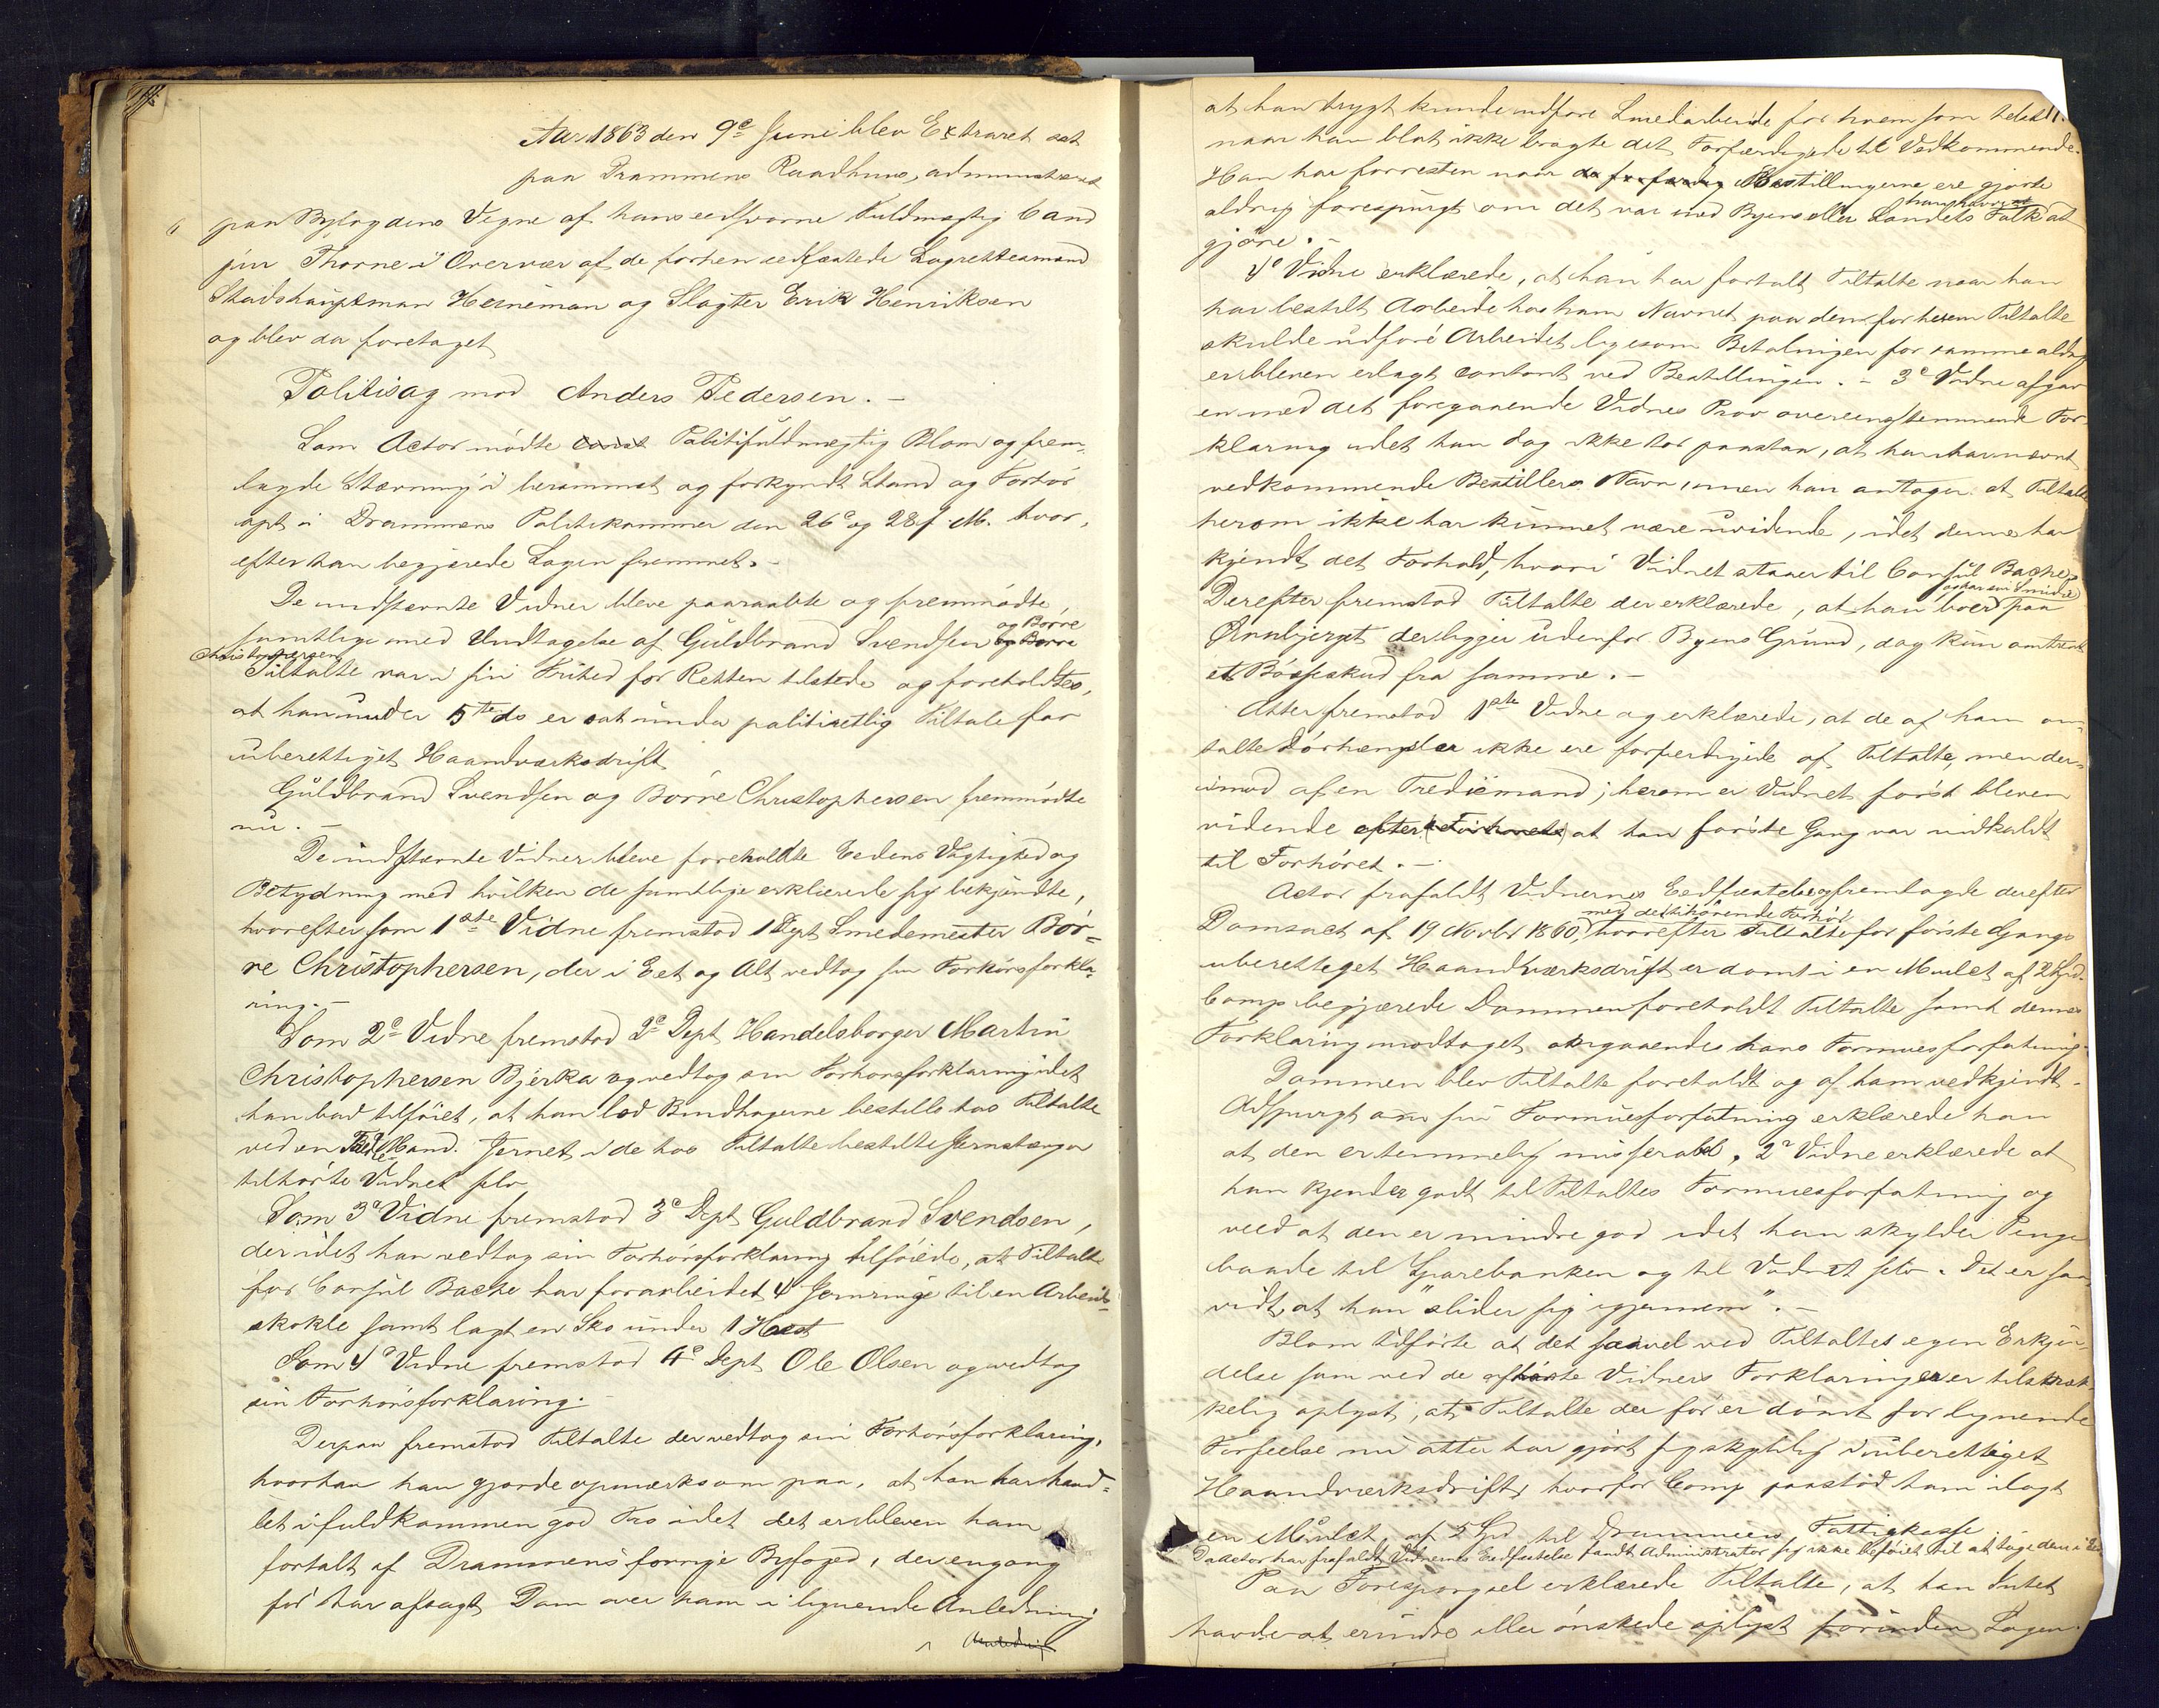 Aar 1863 den 9e Juni blev Extraret sat
paa Drammens Raadhuus, administreret
paa Byfogdens Vegne af hans eedsvorne Fuldmægtig Cand
jur Thorne i Overvær af de forhen eedfæstede Lagrettesmænd
Stadshauptman Herneman og Slagter Erik Henriksen
og blev da foretaget
Politisag mod Anders Pedersen. -
Som Actor mødte Politifuldmægtig Blom og frem-
lagde Stævning i berammet og forkyndt Stand og Forhør
opt i Drammens Politikammer den 26e og 28 f. M. hvor-
efter han begjærede Sagen fremmet. -
De indstævnte Vidner bleve paaraabte og fremmødte,
samtlige med Undtagelse af Guldbrand Svendsen og Børre
Christophersen
Tiltalte var i sin Frihed for Retten tilstede og foreholdtes,
at han under 5te ds er sat under politiretlig Tiltale for
uberettiget Haandværksdrift
Guldbrand Svendsen og Børre Christophersen fremmødte
nu. -
De indstævnte Vidner bleve foreholdte Eedens Vigtighed og
Betydning med hvilken de samtlige erklærede sig bekjendte,
hvorefter som 1ste Vidne fremstod 1 Dept Smedemester Bør-
re Christophersen, der i Eet og Alt vedtog sin Forhørsforkla-
ring. -
Som 2e Vidne fremstod 2e Dept Handelsborger Martin
Christophersen Bjerka og vedtog sin Forhørsforklaring idet
han bad tilføiet, at han lod Bindhagerne bestille hos Tiltalte
ved en Tredie Mand. Jernet i de hos Tiltalte bestilte Jernstænger
tilhørte Vidnet selv
Som 3e Vidne fremstod 3e Dept Guldbrand Svendsen,
der idet han vedtog sin Forhørsforklaring tilføiede, at Tiltalte
for Consul Bache har forarbeidet 4 Jernringe til en Arbeids-
skokle samt lagt en Sko under 1 Hest
Som 4e Vidne fremstod 4e Dept Ole Olsen og vedtog
sin Forhørsforklaring. -
Derpaa fremstod Tiltalte der vedtog sin Forhørsforklaring,
hvorhan han gjorde opmærksom paa, at han har hand-
let i fuldkommen god Tro idet det er bleven ham
fortalt af Drammens forrige Byfoged, der engang
før har afsagt Dom over ham i lignende Anledning
at han trygt kunde udføre Smedarbeide for hvem som helst
naar han blot ikke bragte det Forfærdigede til Vedkommende.
Han har forresten naar Bestillingerne ere gjorte
aldrig forespurgt om det var med Byens eller Landets Folk han havde at
gjøre. -
4e Vidne erklærede, at han har fortalt Tiltalte naar han
har bestilt Arbeide hos ham Navnet paa den for hvem Tiltalte
skulde udføre Arbeidet ligesom Betalingen for samme aldrig
er bleven erlagt contant ved Bestillingen. - 3e Vidne afgav
en med det foregaaende Vidnes Prov overeensstemmende For-
klaring idet han dog ikke tør paastaa, at han har nævnt
vedkommende Bestillers Navn, men han antager at Tiltalte
herom ikke har kunnet være uvidende, idet denne har
kjendt det Forhold, hvori Vidnet staaer til Consul Bache.
Derefter fremstod Tiltalte der erklærede, at han boer paa
Ørenbjerget der ligger udenfor Byens Grund, dog kun omtrent
et Bøsseskud fra samme. -
Atter fremstod 1ste Vidne og erklærede, at de af ham om-
talte Dørhængsler ikke ere forfærdigede af Tiltalte, men der-
imod af en Trediemand; herom er Vidnet først bleven
vidende efter at han første Gang var indkaldt
til Forhøret. -
Actor frafaldt Vidnernes Eedfæstelse og fremlagde derefter
Domsact af 19 Novbr 1860, med dertilhørende Forhør hvorefter Tiltalte for første Gangs
uberettiget Haandværksdrift er dømt i en Mulct af 2 Spd.
Comp begjærede Dommen foreholdt Tiltalte samt dennes
Forklaring modtaget angaaende hans Formuesforfatning.
Dommen blev Tiltalte foreholdt og af ham vedkjendt. -
Adspurgt om sin Formuesforfatning erklærede han
at den er temmelig misserabel, 2e Vidne erklærede at
han kjender godt til Tiltaltes Formuesforfatning og
veed at den er mindre god idet han skylder Penge
baade til Sparebanken og til Vidnet selv. Det er saa-
vidt, at han "slider sig igjennem". -
Blom udførte at det saavel ved Tiltaltes egen Erkjen-
delse som ved de afhørte Vidners Forklaringer er tilstræk-
kelig oplyst, at Tiltalte der før er dømt for lignende
Forseelse nu atter har gjort sig skyldig i uberettiget
Haandværksdrift, hvorfor Comp paastod ham ilagt
en Mulct af 5 Spd til Drammens Fattigkasse
Da Actor har frafaldt Vidnernes Eedfæstelse fandt Administrator sig ikke beføiet til at tage dem i Eed
Paa Forespørgsel erklærede Tiltalte, at han Intet
havde at erindre eller ønskede oplyst forinden Sagen